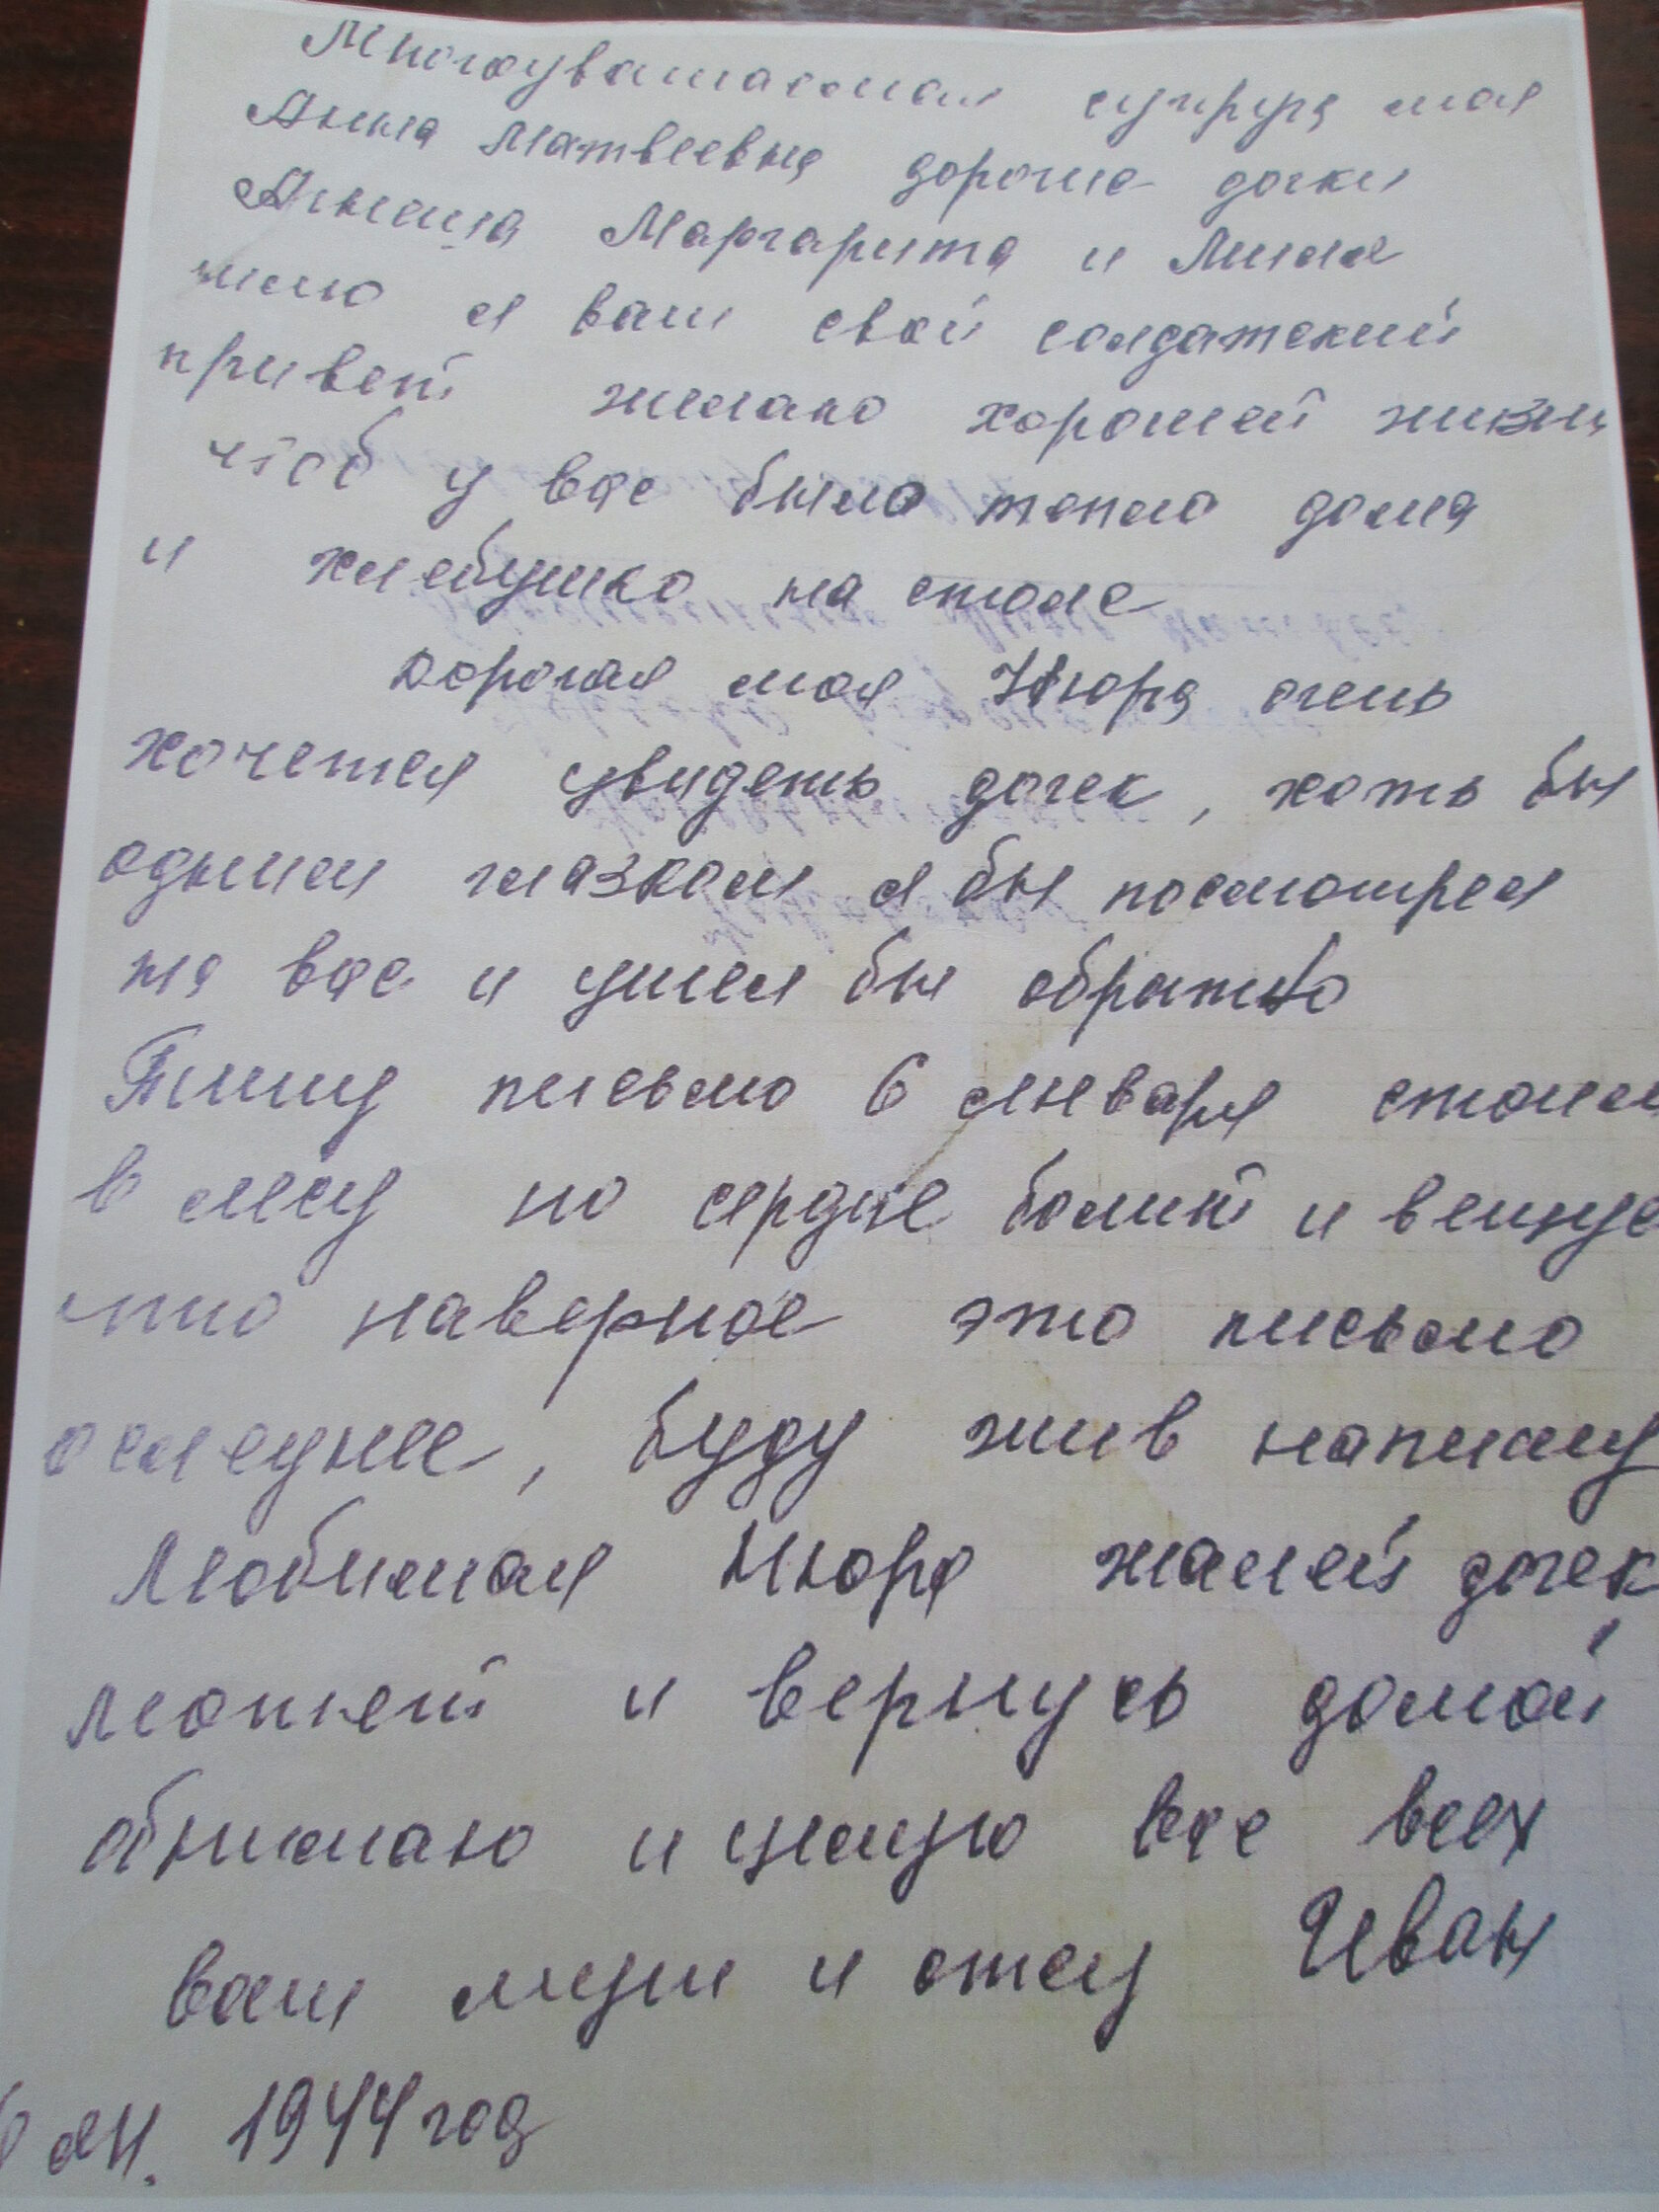 Многоуважаемая супруга моя
Анна Матвеевна дорогие дочки
Маргарита и Лиля
шлю я вам свой солдатский
привет желаю хорошей жизни
чтоб у вас было тепло дома
и хлебушко на столе
Дорогая моя Нюра очень
хочется увидеть дочек, хоть бы
одним глазком я бы посмотрел
на вас и ушел бы обратно
Пишу письмо 6 января стоим
в лесу но сердце болит и вещуе
что наверное это письмо
оследнее, буду жив напишу
Любимая Нюра жалей дочек
может и вернусь домой
обнимаю и целую вас всех
ваш муж и отец Иван
6 ян. 1944 год